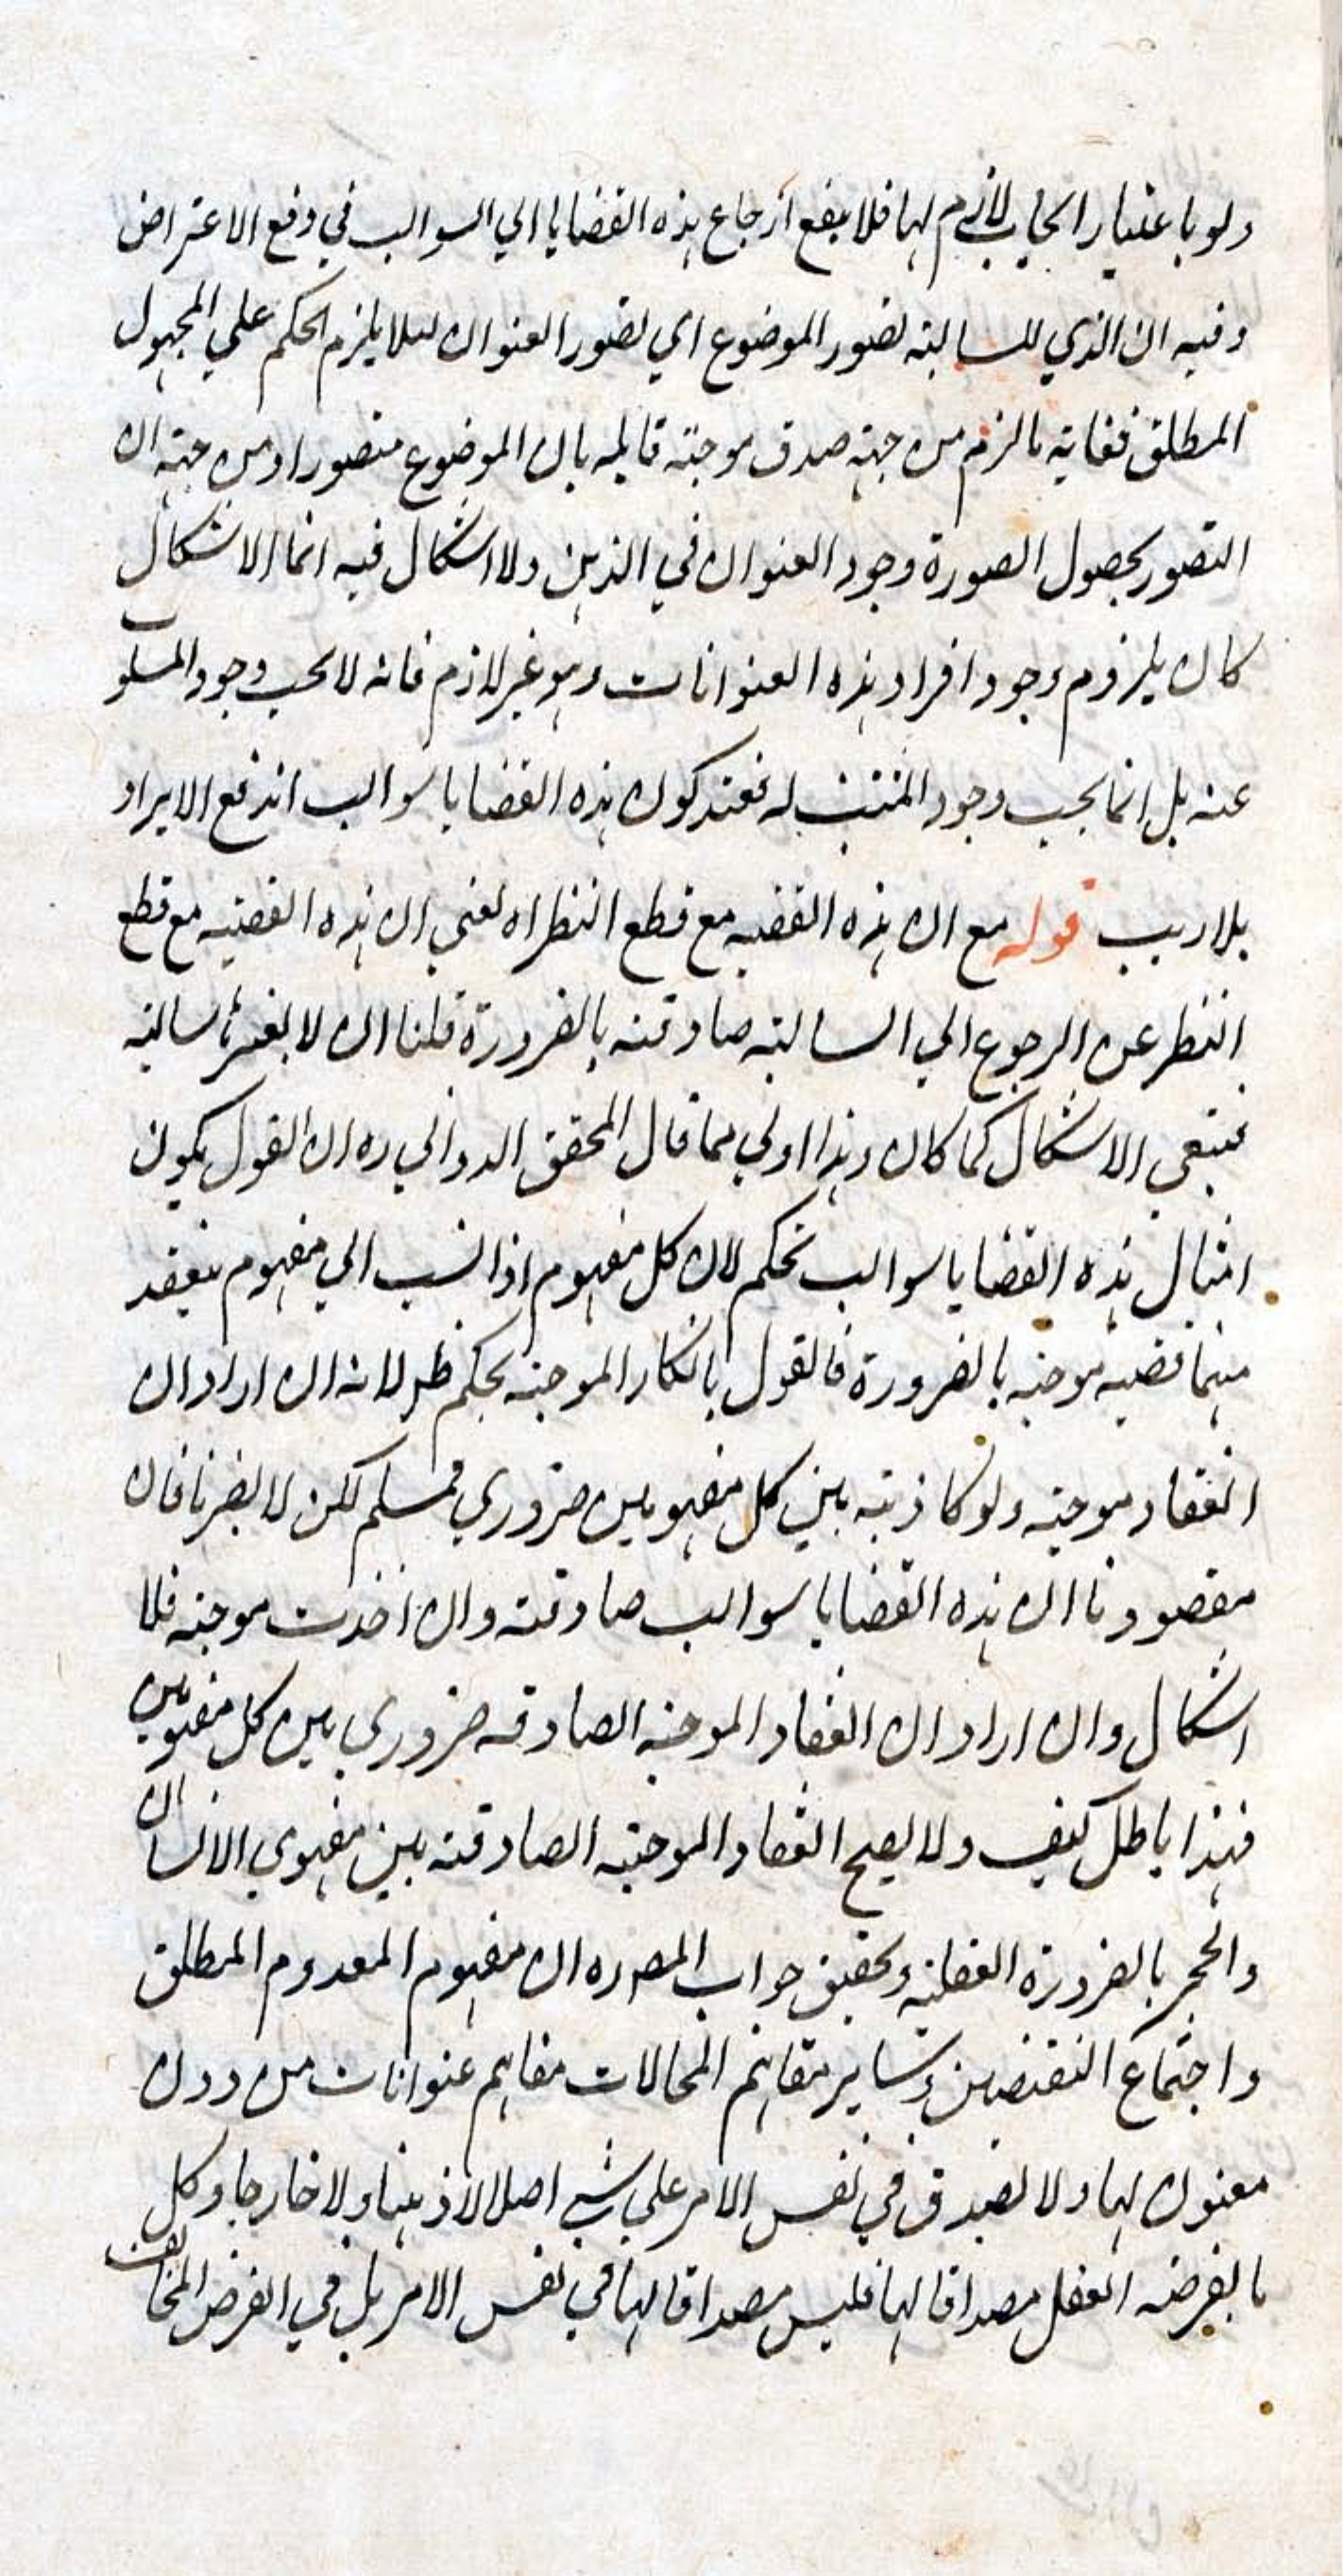 ولو باعتبار ايجاب لازم لها فلا ينفع ارجاع هذه القضايا الي السوالب في دفع الاعتراض
وفيه ان الذي للسالبة تصور الموضوع اي تصور العنوان لئلا يلزم الحكم علي المجهول
المطلق فغاية ما لزم من جهة صدق موجبة قايلة بان الموضوع متصور او من جهة ان
التصور بحصول الصورة وجود العنوان في الذهن ولا اشكال فيه انما الاشكال
كان يلزوم وجود افراد هذه العنوانات وهو غير لازم فانه لا يجب وجود المسلوب
عنه بل انما يجب وجود المثبت له فعند كون هذه القضايا سوالب اندفع الايراد
بلا ريب قوله مع ان هذه القضيه مع قطع النظر اه يعني ان هذه القضيه مع قطع
النظر عن الرجوع الي السالبة صادقة بالضرورة قلنا ان لا سالبة
فيبقي الاشكال كما كان وهذا اولي مما قال المحقق الدواني ره ان القول بكون
امثال هذه القضايا سوالب تحكم لان كل مفهوم اذا نسب الي مفهوم ينعقد
بينهما قضية موجبه بالضرورة فالقول بانكار الموجبه تحكم ظ لانه ان اراد ان
انعقاد موجبه ولو كاذبته بين كل مفهومين ضروري فمسلم لكن لا يضرنا فان
مقصودنا ان هذه القضايا سوالب صادقة وان اخذت موجبه فلا
اشكال وان اراد ان انعقاد الموجبه الصادقه ضروري بين كل مفهومين
فهذا باطل كيف ولا يصح انعقاد الموجبه الصادقته بين مفهومي الانسان
والحجر بالضرورة العقلية وتحقيق جواب المصره ان مفهوم المعدوم المطلق
واجتماع النقيضين وساير مفاهيم المحالات مفاهيم عنوانات من دون
معنون لها ولا تصدق في نفس الامر علي شي اصلا لا ذهنا ولا خارجا وكل
ما يفرضه العقل مصداقا لها فليس مصداقا لها في نفس الامر بل في الفرض المخالف